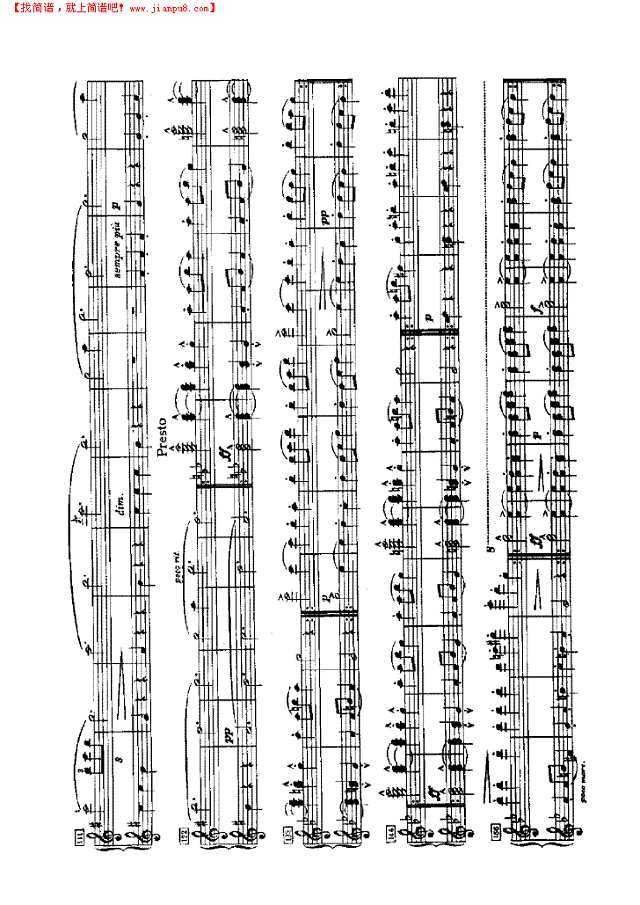 【找简谱，就上简谱吧! www.jianpu8.com】
111
3
8
sempre più p
dim.
122
poco rit.
Presto
pp
ff
p
pp
ff
p
8
ff
p
f
poco marc.